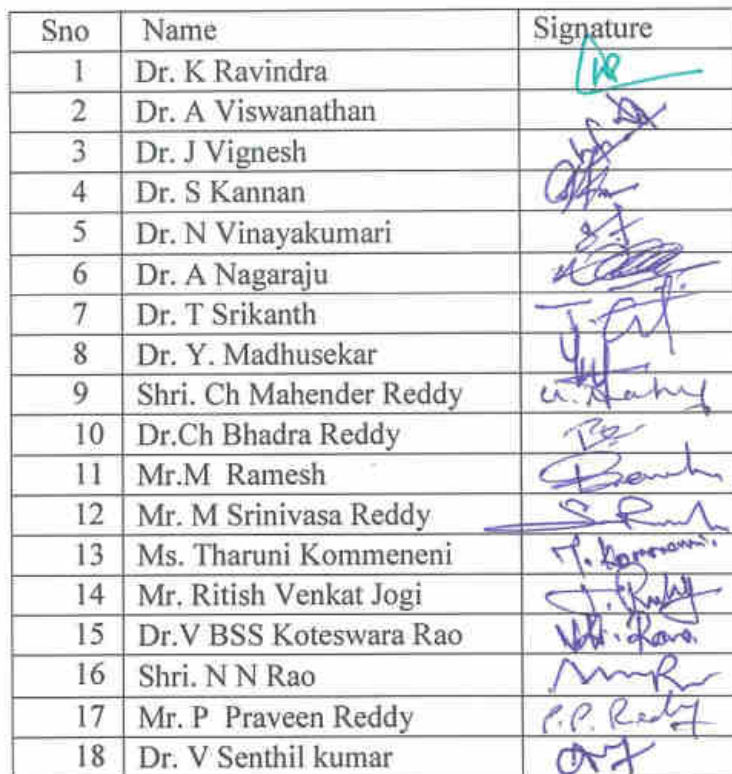 Sno Name Signature
1 Dr. K Ravindra
2 Dr. A Viswanathan
3 Dr. J Vignesh
4 Dr. S Kannan
5 Dr. N Vinayakumari
6 Dr. A Nagaraju
7 Dr. T Srikanth
8 Dr. Y. Madhusekar
9 Shri. Ch Mahender Reddy
10 Dr.Ch Bhadra Reddy
11 Mr.M Ramesh
12 Mr. M Srinivasa Reddy
13 Ms. Tharuni Kommeneni
14 Mr. Ritish Venkat Jogi
15 Dr.V BSS Koteswara Rao
16 Shri. N N Rao
17 Mr. P Praveen Reddy P.P. Reddy
18 Dr. V Senthil kumar